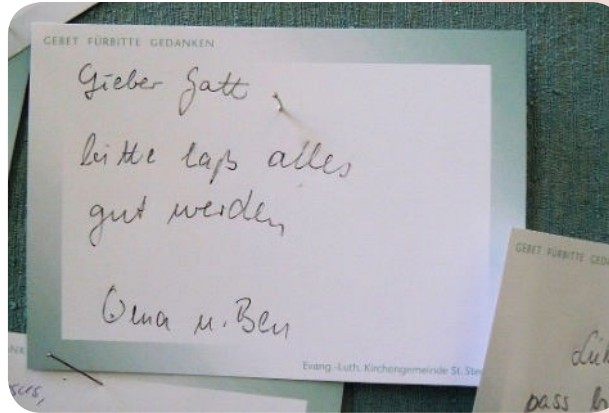 GEBET FÜRBITTE GEDANKEN
Lieber Gott,
bitte laß alles
gut werden
Oma u. Ben
Evang.-Luth. Kirchengemeinde St.
GEBET FÜRBITTE
pass